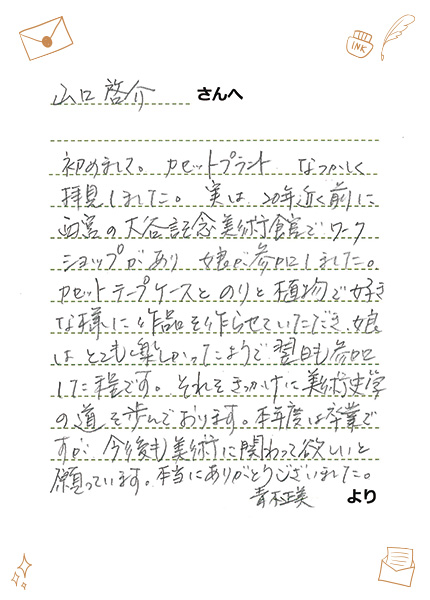 INK
山口 啓介 さんへ
初めまして。カセットプラント なつかしく
拝見しました。実は、20年近く前に
西宮の大谷記念美術館でワーク
ショップがあり 娘が参加しました。
カセットテープケースとのりと植物で好き
な様に作品を作らせていただき、娘
は とても楽しかったようで翌日も参加
した程です。それをきっかけに美術史学
の道を歩んでおります。本年度は卒業で
すが 今後も美術に関わって欲しいと
願っています。本当にありがとうございました。
青木正美 より